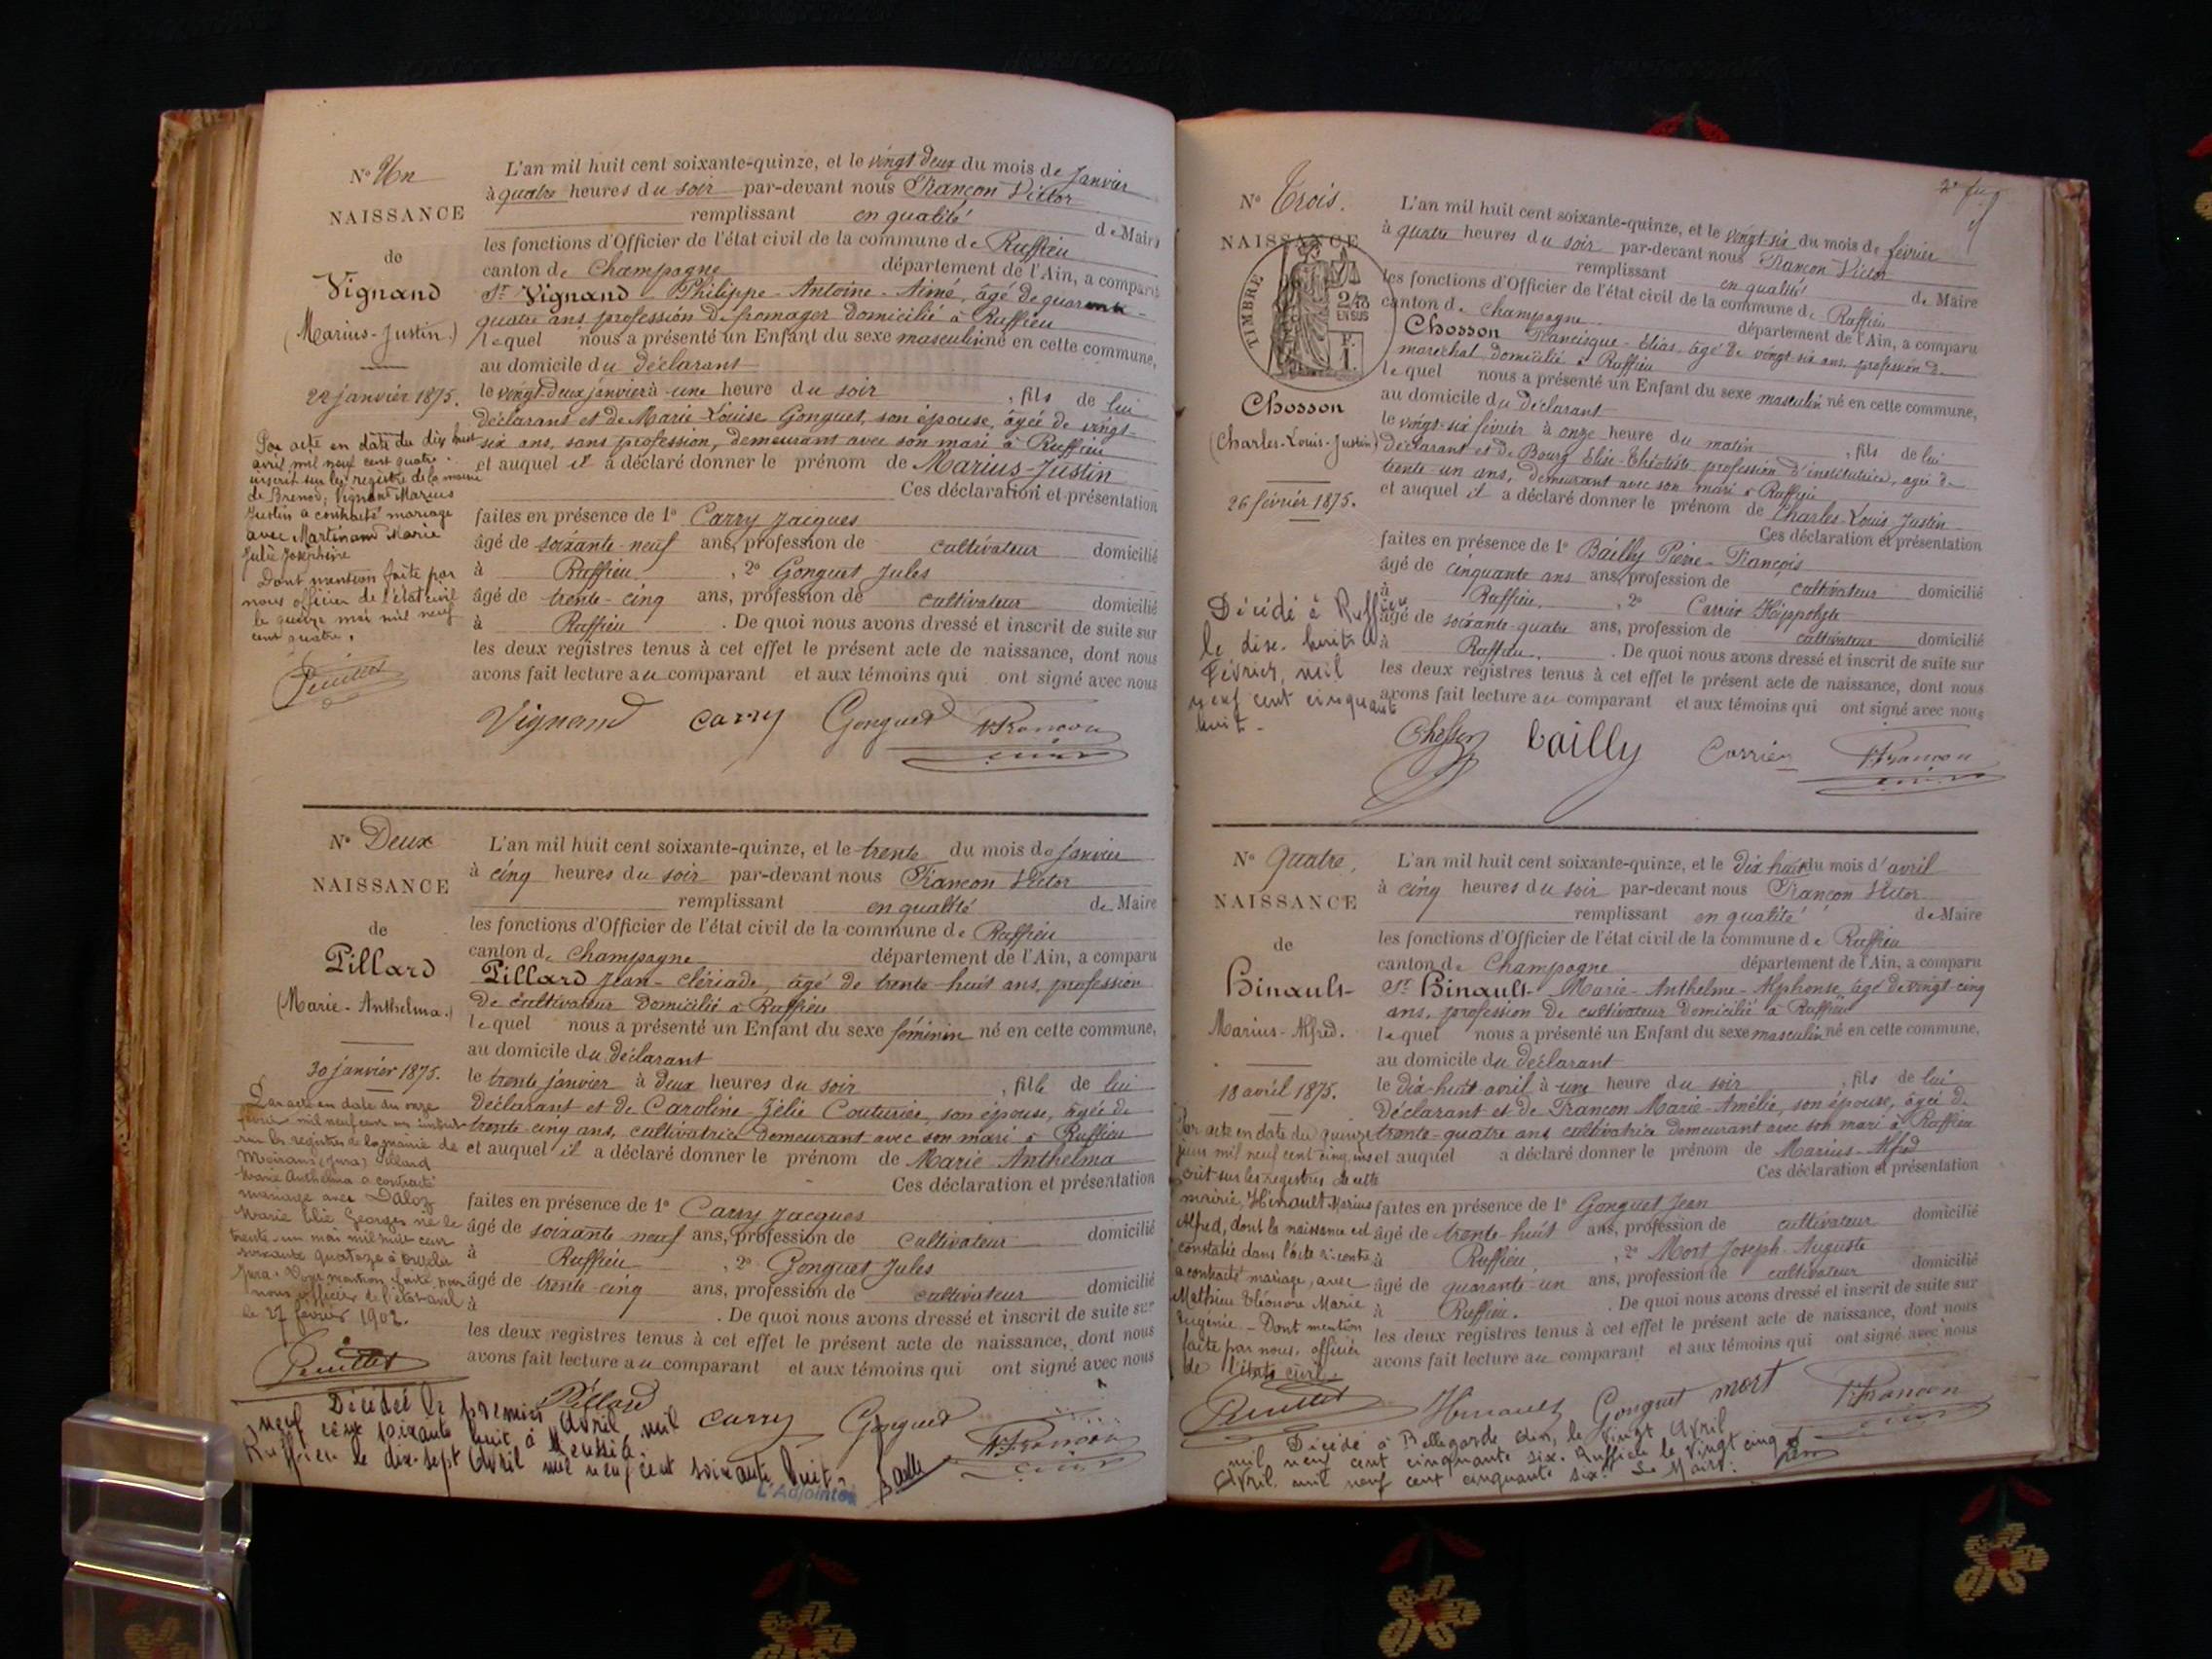 N° Un
NAISSANCE
de
Vignand
(Marius-Justin.)
22 janvier 1875.
Par acte en date du dix huit
avril mil neuf cent quatre
inscrit sur les registre de la mairie
de Brenod, Vignand Marius
Justin a contracté mariage
avec Martinand Marie
Julie Joséphine
Dont mention faite par
nous officier de l'état civil
le quinze mai mil neuf
cent quatre.
L'an mil huit cent soixante-quinze, et le vingt deux du mois de Janvier
à quatre heures du soir par-devant nous Françon Victor
remplissant en qualité de Maire
les fonctions d'Officier de l'état civil de la commune de Ruffieu
canton de Champagne département de l'Ain, a comparu
Sr Vignand Philippe-Antoine-Aimé, âgé de quarante-
quatre ans, profession de fromager domicilié à Ruffieu
lequel nous a présenté un Enfant du sexe masculin né en cette commune,
au domicile du déclarant
le vingt-deux janvier à une heure du soir , fils de lui
déclarant et de Marie-Louise Gonguet, son épouse, âgée de vingt-
six ans, sans profession, demeurant avec son mari à Ruffieu
et auquel il a déclaré donner le prénom de Marius-Justin
Ces déclaration et présentation
faites en présence de 1° Carry Jacques
âgé de soixante-neuf ans, profession de cultivateur domicilié
à Ruffieu , 2° Gonguet Jules
âgé de trente-cinq ans, profession de cultivateur domicilié
à Ruffieu . De quoi nous avons dressé et inscrit de suite sur
les deux registres tenus à cet effet le présent acte de naissance, dont nous
avons fait lecture au comparant et aux témoins qui ont signé avec nous
Vignand Carry Gonguet V. Françon
N° Deux
NAISSANCE
de
Pillard
(Marie-Anthelma.)
30 janvier 1875.
Par acte en date du onze
février mil neuf cent un inscrit
sur les registres de la mairie de
Moirans (Jura) Pillard
Marie Anthelma a contracté
mariage avec Daloz
Marie Elie Georges né le
trente-un mai mil huit cent
soixante quatorze à
Jura. mention faite par
nous officier de l'état civil
le 27 février 1902.
L'an mil huit cent soixante-quinze, et le trente du mois de janvier
à cinq heures du soir par-devant nous Françon Victor
remplissant en qualité de Maire
les fonctions d'Officier de l'état civil de la commune de Ruffieu
canton de Champagne département de l'Ain, a comparu
Pillard Jean-Clériade, âgé de trente-huit ans, profession
de cultivateur domicilié à Ruffieu
lequel nous a présenté un Enfant du sexe féminin né en cette commune,
au domicile du déclarant
le trente janvier à deux heures du soir , fille de lui
déclarant et de Caroline-Zélie Couturier, son épouse, âgée de
trente-cinq ans, cultivatrice demeurant avec son mari à Ruffieu
et auquel il a déclaré donner le prénom de Marie Anthelma
Ces déclaration et présentation
faites en présence de 1° Carry Jacques
âgé de soixante neuf ans, profession de cultivateur domicilié
à Ruffieu , 2° Gonguet Jules
âgé de trente-cinq ans, profession de cultivateur domicilié
à . De quoi nous avons dressé et inscrit de suite sur
les deux registres tenus à cet effet le présent acte de naissance, dont nous
avons fait lecture au comparant et aux témoins qui ont signé avec nous
Pillard Carry Gonguet V. Françon
Décédée le premier Avril mil
neuf cent soixante huit à Meussia
Ruffieu le dix-sept Avril mil neuf cent soixante huit
L'Adjoint
2e fu.
N° Trois.
NAISSANCE
TIMBRE
2/10
EN SUS
F.
1.
Chosson
(Charles-Louis-Justin)
26 février 1875.
Décédé à Ruffieu
le dix-huit
Février, mil
neuf cent cinquante
huit.
L'an mil huit cent soixante-quinze, et le vingt-six du mois de février
à quatre heures du soir par-devant nous Françon Victor
remplissant en qualité de Maire
les fonctions d'Officier de l'état civil de la commune de Ruffieu
canton de Champagne département de l'Ain, a comparu
Chosson Francisque-Elias, âgé de vingt-six ans, profession de
maréchal, domicilié à Ruffieu
lequel nous a présenté un Enfant du sexe masculin né en cette commune,
au domicile du déclarant
le vingt-six février à onze heure du matin , fils de lui
déclarant et de Bourg Elise-Théotiste profession d'institutrice, âgée de
trente-un ans, demeurant avec son mari à Ruffieu
et auquel il a déclaré donner le prénom de Charles-Louis Justin
Ces déclaration et présentation
faites en présence de 1° Bailly Pierre-François
âgé de cinquante ans ans, profession de cultivateur domicilié
à Ruffieu , 2° Carrier Hippolyte
âgé de soixante-quatre ans, profession de cultivateur domicilié
à Ruffieu . De quoi nous avons dressé et inscrit de suite sur
les deux registres tenus à cet effet le présent acte de naissance, dont nous
avons fait lecture au comparant et aux témoins qui ont signé avec nous
Chosson bailly Carrier V. Françon
N° Quatre.
NAISSANCE
de
Hinault
Marius-Alfred.
18 avril 1875.
Par acte en date du quinze
juin mil neuf cent cinq, ins
crit sur les registres de cette
mairie, Hinault Marius
Alfred, dont la naissance est
constatée dans l'acte ci-contre
a contracté mariage, avec
Mathieu Eléonore Marie
Eugénie. - Dont mention
faite par nous, officier
de l'état civil.
L'an mil huit cent soixante-quinze, et le dix huit du mois d'avril
à cinq heures du soir par-devant nous Françon Victor
remplissant en qualité de Maire
les fonctions d'Officier de l'état civil de la commune de Ruffieu
canton de Champagne département de l'Ain, a comparu
Sr Hinault Marie-Anthelme-Alphonse, âgé de vingt-cinq
ans, profession de cultivateur domicilié à Ruffieu
lequel nous a présenté un Enfant du sexe masculin né en cette commune,
au domicile du déclarant
le dix-huit avril à une heure du soir , fils de lui
déclarant et de Françon Marie-Amélie, son épouse, âgée de
trente-quatre ans cultivatrice demeurant avec son mari à Ruffieu
et auquel a déclaré donner le prénom de Marius-Alfred
Ces déclaration et présentation
faites en présence de 1° Gonguet Jean
âgé de trente-huit ans, profession de cultivateur domicilié
à Ruffieu , 2° Mort Joseph-Auguste
âgé de quarante-un ans, profession de cultivateur domicilié
à Ruffieu . De quoi nous avons dressé et inscrit de suite sur
les deux registres tenus à cet effet le présent acte de naissance, dont nous
avons fait lecture au comparant et aux témoins qui ont signé avec nous
Hinault Gonguet mort V. Françon
Décédé à Bellegarde Ain, le vingt Avril
mil neuf cent cinquante six. Ruffieu le vingt cinq
Avril mil neuf cent cinquante six. Le Maire: